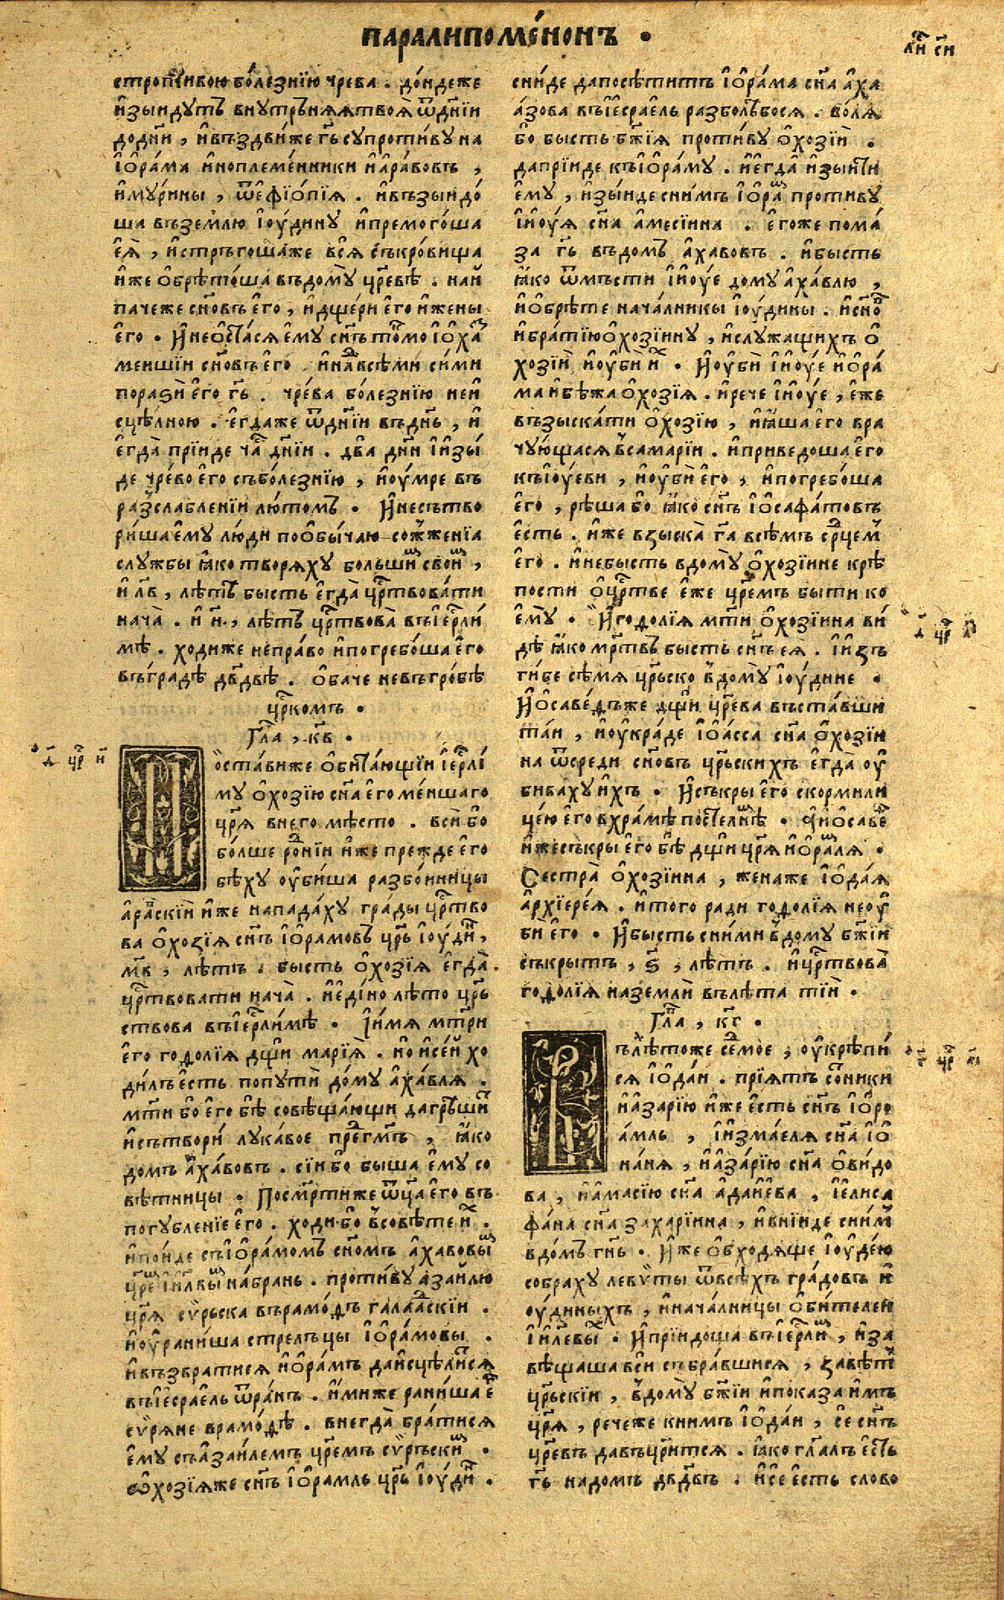 паралипоме́нонъ .
стропти́вою бо́лезнїю чрева . до́ндеже
и҆зыидутъ внутрьняѧ твоѧ̀ ѿ дні́и
додні́и , и҆въздви́же гь҃ супроти́ву на
і҆ѻра́ма и҆ноплеме́нники и҆ара́вовъ ,
и҆му́рины , ѿ е҆фїо́пїѧ . и҆възыидо́
ша въ землю і҆ѹ́дину и҆премого́ша
е҆ѧ̀ , и҆стръгоша́же всѧ̀ съкро́вища
и҆же ѻ҆брѣто́ша въ дому̀ црвѣ̀ . наи҆
паче́же сн҃овъ е҆го̀ , и҆дще́ри е҆го̀ и҆жены̀
е҆го̀ . И҆неѡста́сѧ е҆му̀ сн҃ъ то́кмо і҆ѻха́
менши́и сн҃овъ е҆го̀ . и҆на́двсѣ́ми си́ми
поразѝ е҆го̀ гь҃ . чре́ва бо́лезнїю неи҆
сцѣ́лною . е҆гда́же ѿ дні́и въ днь҃ , и҆
е҆гда̀ прїи́де ча́съ дні́и . два̀ дни̑ и҆изы́
де чре́во е҆го̀ съ бо́лезнїю , и҆ѹ҆́мре въ
разслабле́нїи лю́томъ . И҆несътво
ри́ша е҆му̀ лю́ди по ѻ҆бы́чаю сожже́нїа
слу́жбы ꙗ҆ко творѧ́ху бо́льшим свои́м ,
и҆ л҃в , лѣ́тъ бысть е҆гда̀ црствова́ти
нача̀ . и҆ и҃ , лѣ́тъ црствова̀ въ іе҆рли́
мѣ . ходи́же непра́во и҆погребо́ша е҆го̀
въ гра́дѣ дв҃двѣ . ѻ҆ба́че невъ гро́бѣ
црскомъ .
Гла , к҃в .
Поста́виже ѻ҆бита́ющїи іе҆рли́
му ѻ҆хозі́ю сн҃а е҆го̀ ме́ншаго
црѧ̀ вне́го мѣ́сто . вси́ бо
бо́лше ро́нїи и҆же пре́жде е҆го̀
бѣ́ху ѹ҆би́ша разбо́иницы
ара́пскїи и҆же напада́ху гра́ды црство
ва ѻ҆хозі́ѧ сн҃ъ і҆ѻра́мовъ црь і҆ѹ́дин ,
м҃в , лѣ́тъ . бысть ѻ҆хозі́ѧ е҆гда̀
црствова́ти нача̀ . и҆еді́но лѣ́то црь
ствова въ іе҆рли́мѣ . И҆имѧ мт҃ри
е҆го̀ годолі́ѧ дщи̑ марі́ѧ . и҆о и҆се́и хо
ди́лъ е҆сть по пути́ до́му а҆ха́влѧ .
мт҃и бо е҆го̀ бѣ̀ совѣща́ющи да грѣши́т
и҆сътвори̑ лука́вое пре́дгмъ , ꙗ҆ко
домъ а҆ха́вовъ . сїи́ бо бы́ша е҆му̀ со
вѣ́тницы . По смр҃тиже ѿца̀ е҆го̀ въ
погубле́нїе е҆го̀ . ходи́ бо в̾совѣ́те и҆х .
и҆по́иде съ і҆ѻра́момъ сн҃омъ а҆ха́вовым
црем і҆ил҃вым на́брань . проти́ву а҆заи́лю
црѧ̀ сѵ҆́рьска въ рамо́дъ галаа́дскїи .
и҆ѹ҆рани́ша стре́льцы і҆ѻра́мовы .
и҆възврати́сѧ и҆ѻра́мъ да и҆сцѣли́тсѧ
въ іе҆сраель ѿ ра́нъ . и҆ми́же рани́ша е҆г
сѵ҆́рѧне в рамо́дѣ . внегда̀ бра́тисѧ
е҆му̀ съ а҆заи́лемъ цремъ сѵ҆́рьским .
ѻ҆хозі́ѧже сн҃ъ і҆ѻра́мль црь і҆ѹ́дин .
сни́де да посѣ́титъ і҆ѻра́ма сн҃а а҆ха
а́зова въ іе҆сраель разболѣ́босѧ . во́лѧ
бо бы́сть бж҃їѧ проти́ву ѻ҆хозі́и .
да прїи́де къ і҆ѻра́му . и҆егда̀ и҆зыити
е҆му̀ , и҆зы́иде сни́мъ і҆ѻра́м проти́ву
і҆и҆ѹ́ѧ сн҃а а҆месі́ина . е҆го́же пома́
за гь҃ въ домъ а҆ха́вовъ . и҆бысть
ꙗ҆ко ѿмьсти і҆и҆ѹ́е дому а҆ха́влю ,
и҆ѻбрѣ́те нача́лникы і҆ѹ́дины . и҆сно҃в
и҆бра́тїю ѻ҆хозі́ину , и҆служа́щихъ ѻ҆
хозі́и , и҆ѹ҆би̑ и҆х . И҆ѹ҆би̑ і҆и҆ѹ́е и҆ѻра́
ма и҆бѣжа ѻ҆хозі́ѧ . и҆рече і҆и҆ѹ́е , е҆же
възыска́ти ѻ҆хозі́ю , и҆ꙗ҆ша е҆го̀ вра
чу́ющасѧ в̾самарі́и . и҆приведо́ша е҆го̀
къ і҆ѹ́еви , и҆ѹ҆би̑ е҆го̀ , и҆погребо́ша
е҆го̀ , рѣ́ша бо ꙗ҆ко сн҃ъ і҆ѻсафа́товъ
е҆сть . и҆же взыска̀ га҃ всѣ́мъ срцем
е҆го̀ . и҆небысть в дому̀ ѻ҆хозі́ине крѣ́
пости ѻ҆ црстве е҆же цремъ быти ко
е҆му̀ . И҆годолі́ѧ мт҃и ѻ҆хозі́ина ви́
дѣ ꙗ҆ко мр҃твъ бысть сн҃ъ еѧ̀ . і҆изъ
ги́бе сѣ́мѧ црьско в̾дому̀ і҆ѹ́дине .
И҆ѻсаве́дъже дщи̑ цре́ва въста́вши
та́и , и҆ѹ҆кра́де і҆ѻа́сса сн҃а ѻ҆хозі́и
на ѿ среди̑ сн҃овъ црьскихъ е҆гда̀ ѹ҆
бива́ху и҆хъ . И҆съкры̀ е҆го̀ скорми́ли
цею е҆го̀ в хра́мѣ посте́лнѣ . И҆и҆ѻсаве́
и҆же съкры̀ е҆го̀ бѣ̀ дщи̑ црѧ̀ и҆ѻра́млѧ .
Сестра̀ ѻ҆хозі́ина , жена́же і҆ѻда́ѧ
а҆рхїере́ѧ . и҆того̀ ра́ди годолі́ѧ неѹ҆
би е҆го̀ . И҆бысть сни́ми в̾дому бж҃їи
съкры́тъ , ѕ҃ , лѣ́тъ . и҆црствова̀
годолі́ѧ на земли̑ въ лѣ́та тїи́ .
Гла , к҃г .
Въ лѣ́тоже се́дмое , ѹ҆крѣпи́
сѧ і҆ѻда́и . прїѧ́тъ со́тники
и҆а҆зарі́ю и҆же е҆сть сн҃ъ і҆ѻро
а́мль , і҆изма́елѧ сн҃а і҆ѻ
на́нѧ , и҆а҆за́рїю сн҃а ѻ҆ви́до
ва , и҆а҆масі́ю сн҃а а҆даи́ева , і҆е҆лиса
фа́на сн҃а захарі́ина , и҆вни́де сни́м
в до́мъ гнь҃ . И҆же ѻ҆бходѧ́ще і҆ѹ҆де́ю
собра́ху леви́ты ѿ всѣ́хъ гра́довъ и҆
ѹ҆́диныхъ , и҆нача́лницы ѻ҆би́телеи
і҆ил҃евых . И҆прїидо́ша въ іе҆рли́м , и҆за
вѣща́ша вси́ събра́вшиесѧ , завѣ́тъ
црьскїи , в̾дому̀ бж҃їи и҆показа̀ и҆мъ
црѧ̀ , рече́же к ни́мъ і҆ѻда́и , се́ сн҃ъ
цре́въ да въцри́тсѧ . ꙗ҆ко гл҃алъ е҆сть
гь҃ на до́мъ дв҃дъ . и҆се е҆сть сло́во